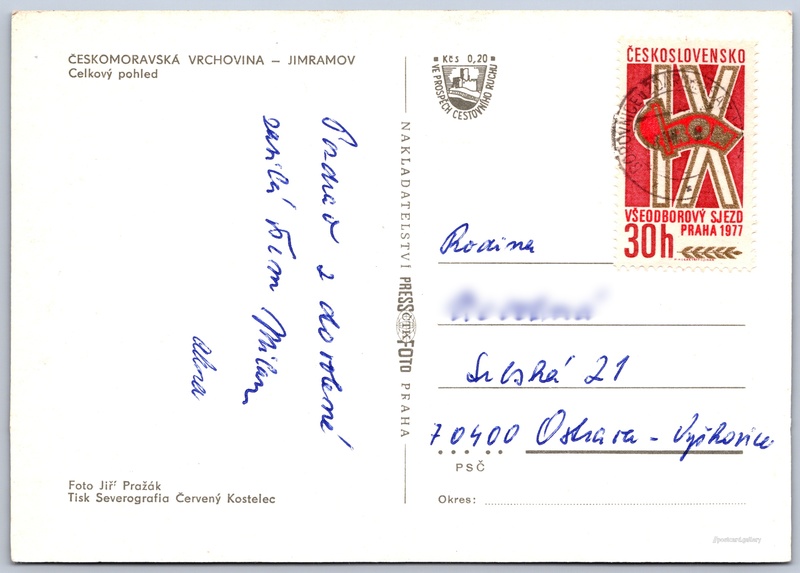 ČESKOMORAVSKÁ VRCHOVINA – JIMRAMOV
Celkový pohled
Pozdrav z dovolené
zasílá Vám Milan
Foto Jiří Pražák
Tisk Severografia Červený Kostelec
NAKLADATELSTVÍ PRESSFOTO PRAHA
ČTK
Kčs 0,20
VE PROSPĚCH CESTOVNÍHO RUCHU
ČESKOSLOVENSKO
IX
VŠEODBOROVÝ SJEZD
PRAHA 1977
30h
Rodina
Srbská 21
70400 Ostrava - Vyškovice
PSČ
Okres: